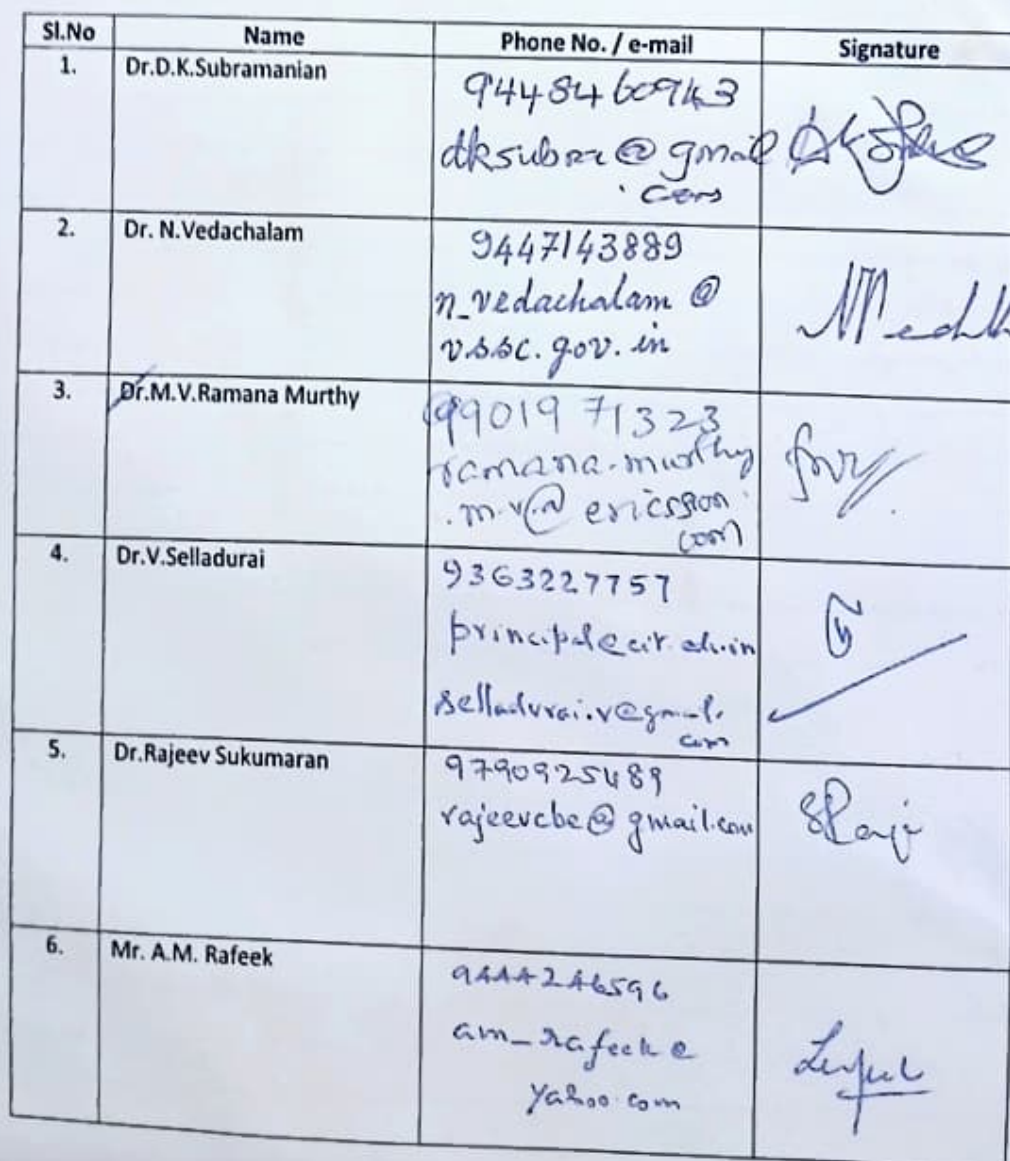 Sl.No Name Phone No. / e-mail Signature
1. Dr.D.K.Subramanian 9448460943
dksubra@gmail
.com
2. Dr. N.Vedachalam 9447143889
n_vedachalam@
vssc.gov.in
3. Dr.M.V.Ramana Murthy 99019 71323
ramana.murthy
.m.v@ericsson.
com
4. Dr.V.Selladurai 9363227757
principal@cit.edu.in
selladurai.v@gmail.
com
5. Dr.Rajeev Sukumaran 9790925489
rajeevcbe@gmail.com
6. Mr. A.M. Rafeek 9444246596
am_rafeek@
yahoo.com